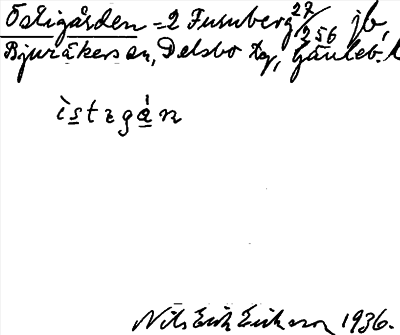 Östigården = 2 Furuberg 27/256 jb,
Bjuråkers sn, Delsbo tg, Gävleb. l
ìstzgán
Nils Erik Erikson 1936.